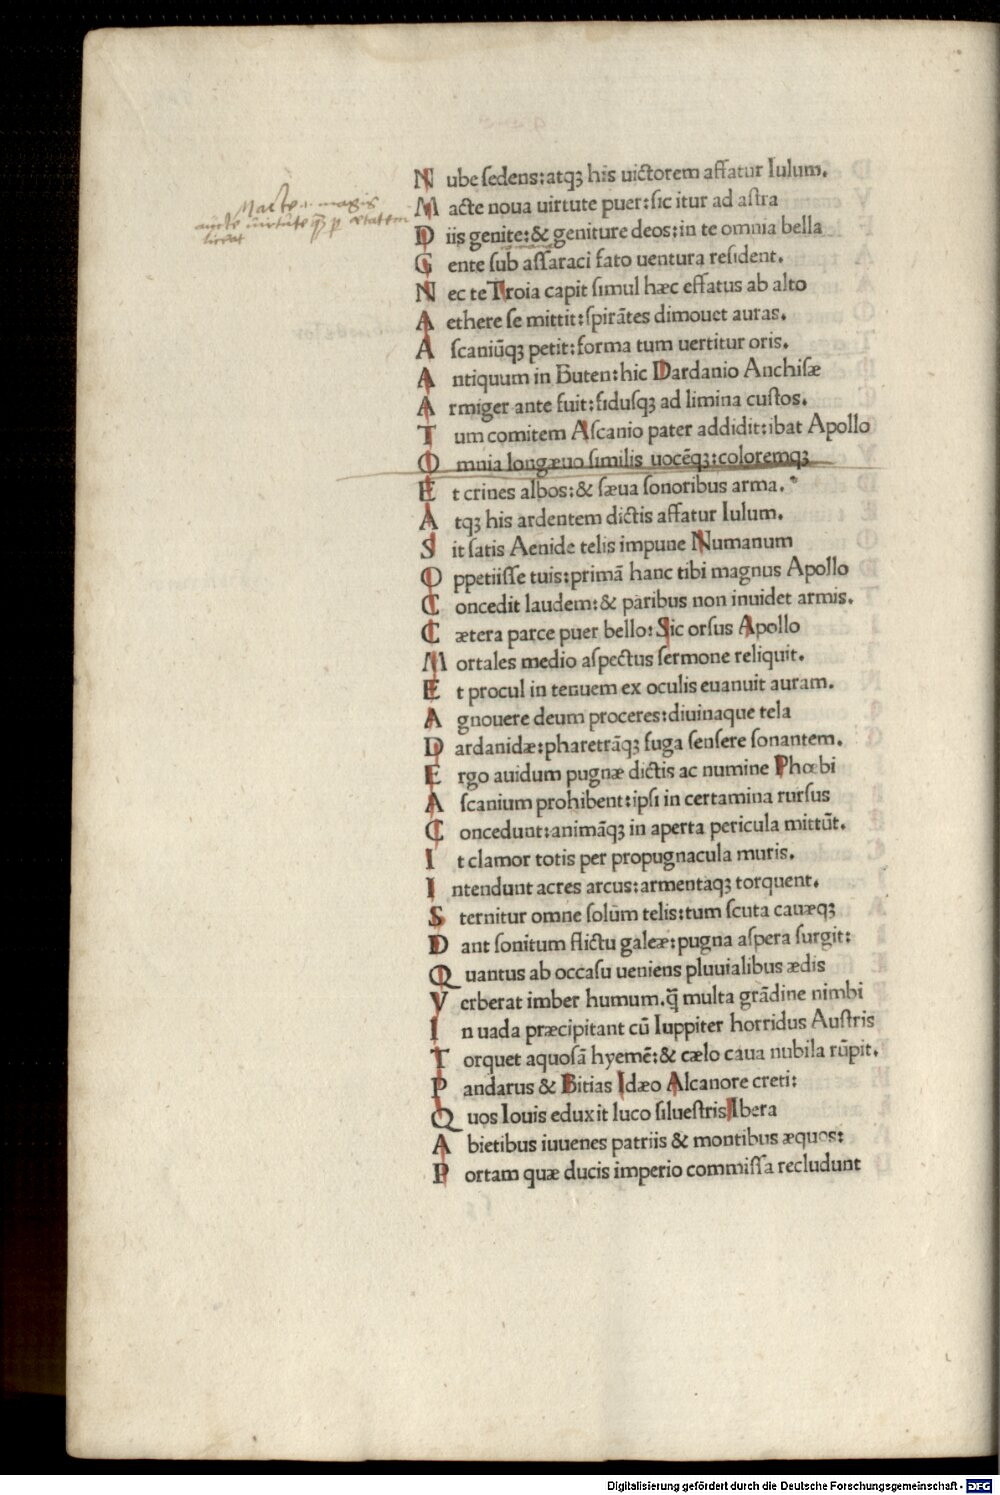 N ube ſedens:atqꝫ his uictorem affatur Iulum.
M acte noua uirtute puer:ſic itur ad aſtra
D iis genite:& geniture deos:in te omnia bella
G ente ſub aſſaraci fato uentura reſident.
N ec te Troia capit ſimul hæc effatus ab alto
A ethere ſe mittit:ſpirãtes dimouet auras.
A ſcaniũqꝫ petit:forma tum uertitur oris.
A ntiquum in Buten:hic Dardanio Anchiſæ
A rmiger ante fuit:fiduſqꝫ ad limina cuſtos.
T um comitem Aſcanio pater addidit:ibat Apollo
O mnia longæuo ſimilis uocẽqꝫ:coloremqꝫ
E t crines albos:& ſæua ſonoribus arma.
A tqꝫ his ardentem dictis affatur Iulum.
S it ſatis Aenide telis impune Numanum
O ppetiiſſe tuis:primã hanc tibi magnus Apollo
C oncedit laudem:& paribus non inuidet armis.
C ætera parce puer bello:Sic orſus Apollo
M ortales medio aſpectus ſermone reliquit.
E t procul in tenuem ex oculis euanuit auram.
A gnouere deum proceres:diuinaque tela
D ardanidæ:pharetrãqꝫ fuga ſenſere ſonantem.
E rgo auidum pugnæ dictis ac numine Phœbi
A ſcanium prohibent:ipſi in certamina rurſus
C oncedunt:animãqꝫ in aperta pericula mittũt.
I t clamor totis per propugnacula muris.
I ntendunt acres arcus:armentaqꝫ torquent.
S ternitur omne ſolum telis:tum ſcuta cauæqꝫ
D ant ſonitum flictu galeæ:pugna aſpera ſurgit:
Q uantus ab occaſu ueniens pluuialibus ædis
V erberat imber humum.q̃ multa grãdine nimbi
I n uada præcipitant cũ Iuppiter horridus Auſtris
T orquet aquoſã hyemẽ:& cælo caua nubila rũpit.
P andarus & Bitias Idæo Alcanore creti:
Q uos Iouis eduxit luco ſilueſtris Ibera
A bietibus iuuenes patriis & montibus æquos:
P ortam quæ ducis imperio commiſſa recludunt
Macte .i. magis
aucte uirtute q̃ ꝑ ætatem
liceat
Digitalisierung gefördert durch die Deutsche Forschungsgemeinschaft - DFG